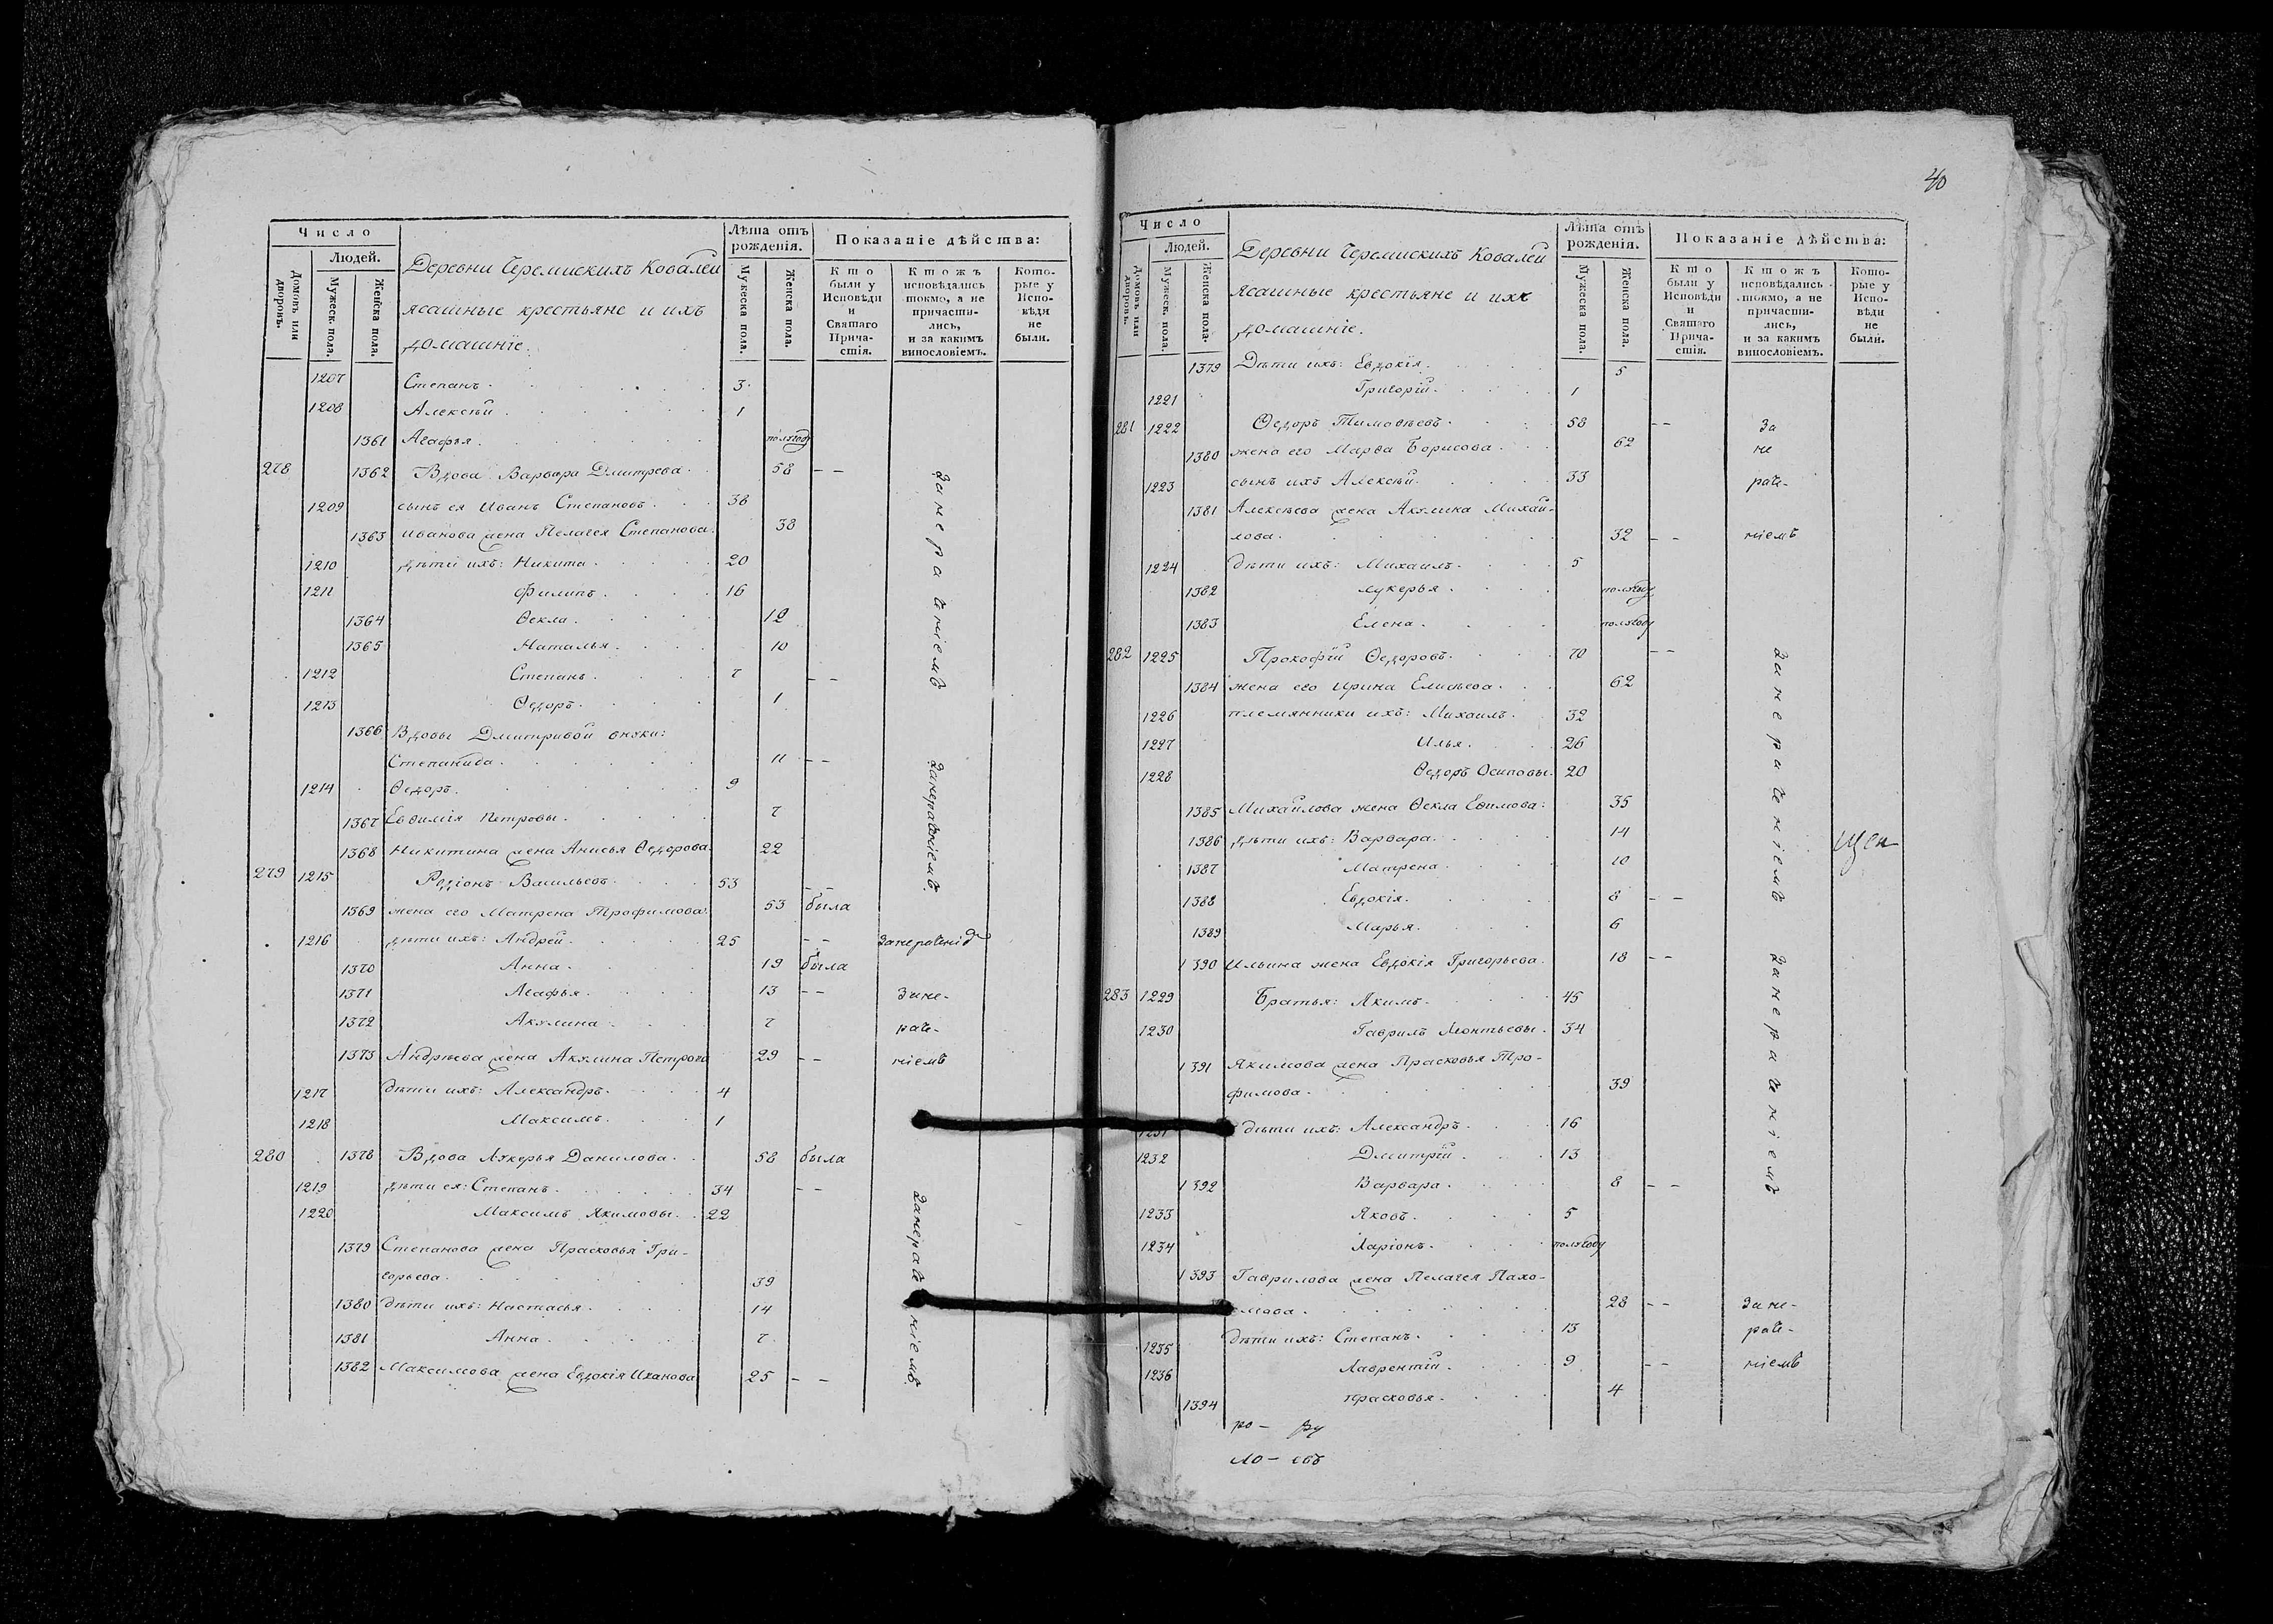 Число
Людей.
Домовъ или дворовъ.
Мужеск. пола.
Женска пола.
Деревни Черемискихъ Ковалей
ясашные крестьяне и ихъ
домашніе.
Лѣта отъ рожденія.
Мужеска пола.
Женска пола.
Показаніе дѣйства:
Кто были у Исповѣди и Святаго Причастія.
Ктожъ исповѣдались токмо, а не причастились, и за какимъ винословіемъ.
Которые у Исповѣди не были.
1207 Степанъ. 3.
1208 Алексѣй. 1
1361 Агафья. полъгоду
278 1362 Вдова Варвара Дмитрева. 58 - -
1209 сынъ ея Иванъ Степановъ. 38
1363 Иванова жена Пелагея Степанова. 38
1210 дѣти ихъ: Никита. 20
1211 Филипъ. 16
1364 Ѳекла. 12
1365 Наталья. 10
1212 Степанъ. 7 - -
1213 Ѳедоръ. 1
занераченіемъ
1366 Вдовы Дмитривой внуки:
Степанида. 11 - -
1214 Ѳедоръ. 9
1367 Евдимія Петровы. 7
1368 Никитина жена Анисья Ѳедорова. 22
занераченіемъ
279 1215 Родіонъ Васильевъ. 53 - -
1369 жена его Матрена Трофимова. 53 была
1216 дѣти ихъ: Андрей. 25 - - занераченіе
1370 Анна. 19 была
1371 Агафья. 13 - - зане-
1372 Акулина. 7 раче-
1373 Андрѣева жена Акулина Петрова 29 - - ніемъ
1217 дѣти ихъ: Александръ. 4
1218 Максимъ. 1
280 1378 Вдова Лукерья Данилова. 58 была
1219 дѣти ея: Степанъ. 34 - -
1220 Максимъ Якимовы. 22
1379 Степанова жена Прасковья Гри-
горьева. 39
1380 дѣти ихъ: Настасья. 14
1381 Анна. 7
1382 Максимова жена Евдокія Иванова 25 - -
занераченіемъ
40
Число
Людей.
Домовъ или дворовъ.
Мужеск. пола.
Женска пола.
Деревни Черемискихъ Ковалей
ясашные крестьяне и ихъ
домашніе.
Лѣта отъ рожденія.
Мужеска пола.
Женска пола.
Показаніе дѣйства:
Кто были у Исповѣди и Святаго Причастія.
Ктожъ исповѣдались токмо, а не причастились, и за какимъ винословіемъ.
Которые у Исповѣди не были.
1379 Дѣти ихъ: Евдокія. 5
1221 Григорій. 1
281 1222 Ѳедоръ Тимоѳеевъ. 58 - - за
1380 жена его Марѳа Борисова. 62 не
1223 сынъ ихъ Алексѣй. 33 раче-
1381 Алексѣева жена Акулина Михай-
лова. 32 - - ніемъ
1224 дѣти ихъ: Михаилъ. 5
1382 Лукерья. полъгоду
1383 Елена. полъгоду
282 1225 Прокофій Ѳедоровъ. 70 - -
1384 жена его Ирина Елисѣева. 62
1226 племянники ихъ: Михаилъ. 32
1227 Илья. 26
1228 Ѳедоръ Осиповы. 20
1385 Михайлова жена Ѳекла Еѳимова: 35
1386 дѣти ихъ: Варвара. 14
1387 Матрена. 10
1388 Евдокія. 8 - -
1389 Марья. 6
занераченіемъ
1390 Ильина жена Евдокія Григорьева. 18 - -
283 1229 Братья: Якимъ. 45
1230 Гаврилъ Леонтьевы. 34
1391 Якимова жена Прасковья Тро-
фимова. 39
1231 дѣти ихъ: Александръ. 16
1232 Дмитрій. 13
1392 Варвара. 8 - -
занераченіемъ
1233 Яковъ. 5
1234 Ларіонъ. полъгоду
1393 Гаврилова жена Пелагея Пахо-
мова. 28 - - зане-
1235 дѣти ихъ: Степанъ. 13 раче-
1236 Лаврентій. 9 - - ніемъ
1394 Прасковья. 4